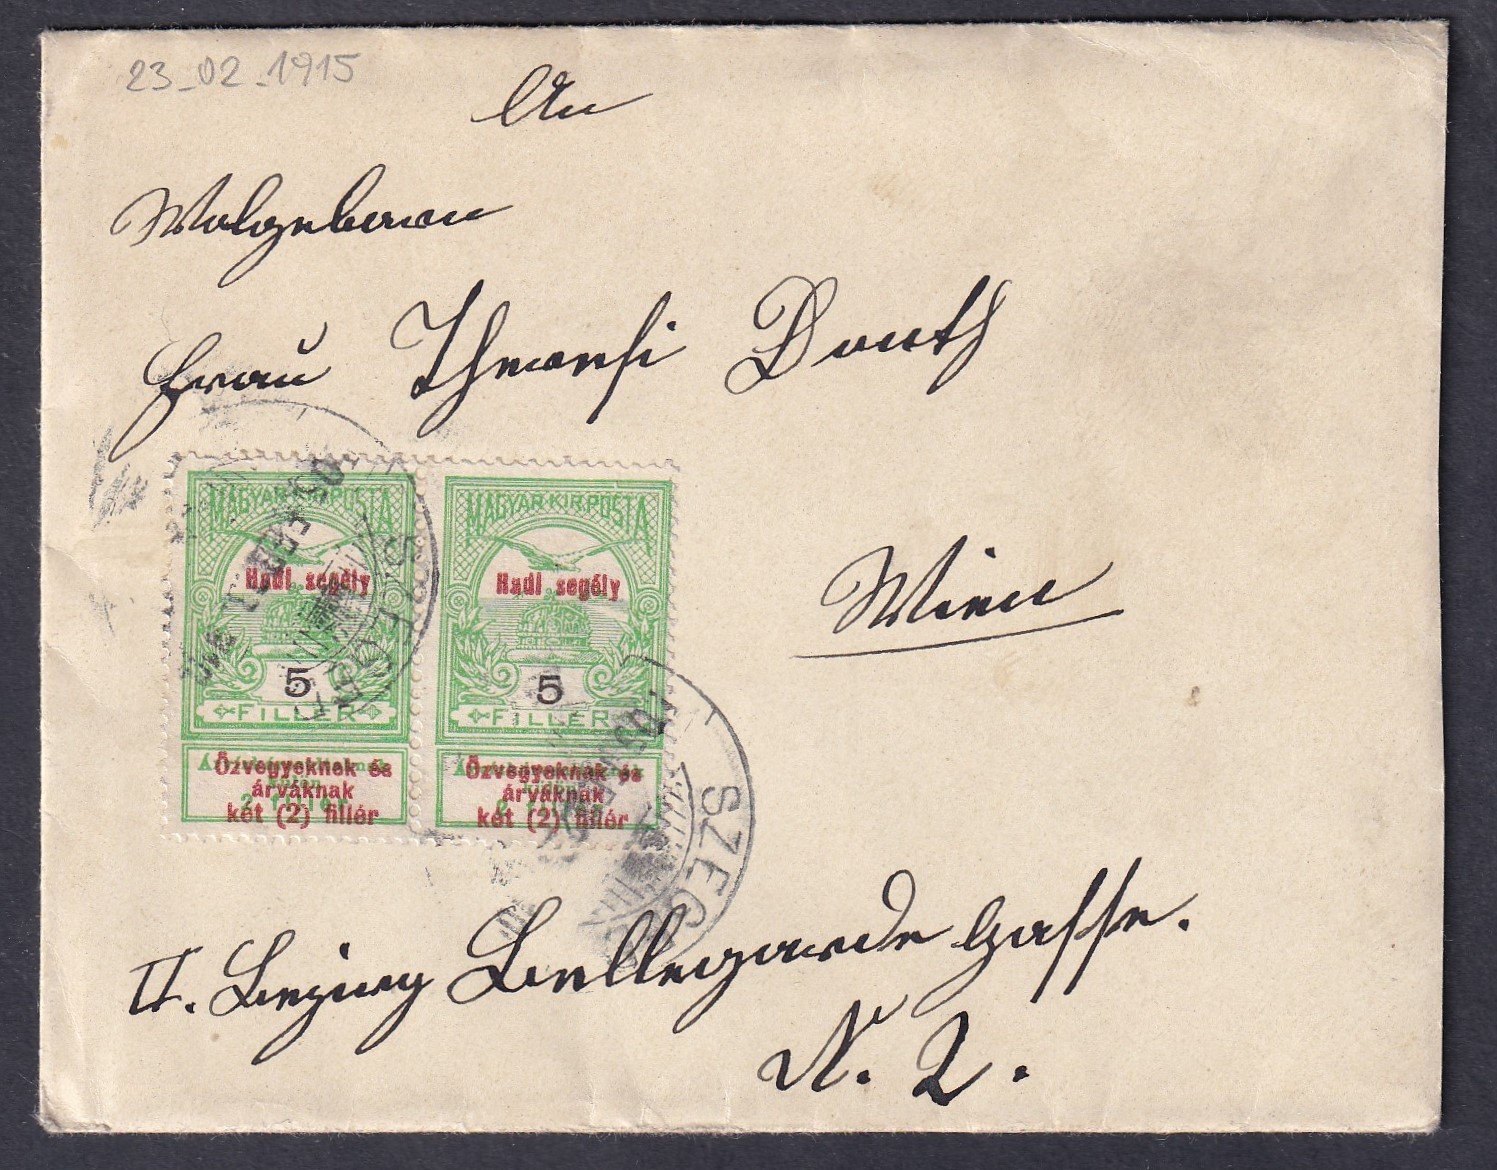 23_02_1915
An
Wolgeboren
Frau Donth
MAGYAR·KIR·POSTA
Hadi segély
5
FILLÉR
Özvegyeknek és
árváknak
két (2) fillér
MAGYAR·KIR·POSTA
Hadi segély
5
FILLÉR
Özvegyeknek és
árváknak
két (2) fillér
SZEG
SZEG
Wien
II. Bezirg Bellegarde Gasse.
N. 2.